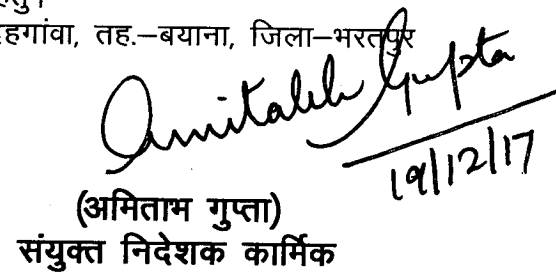 हगांवा, तह.–बयाना, जिला–भरतपुर
Amitabh Gupta
19/12/17
(अमिताभ गुप्ता)
संयुक्त निदेशक कार्मिक